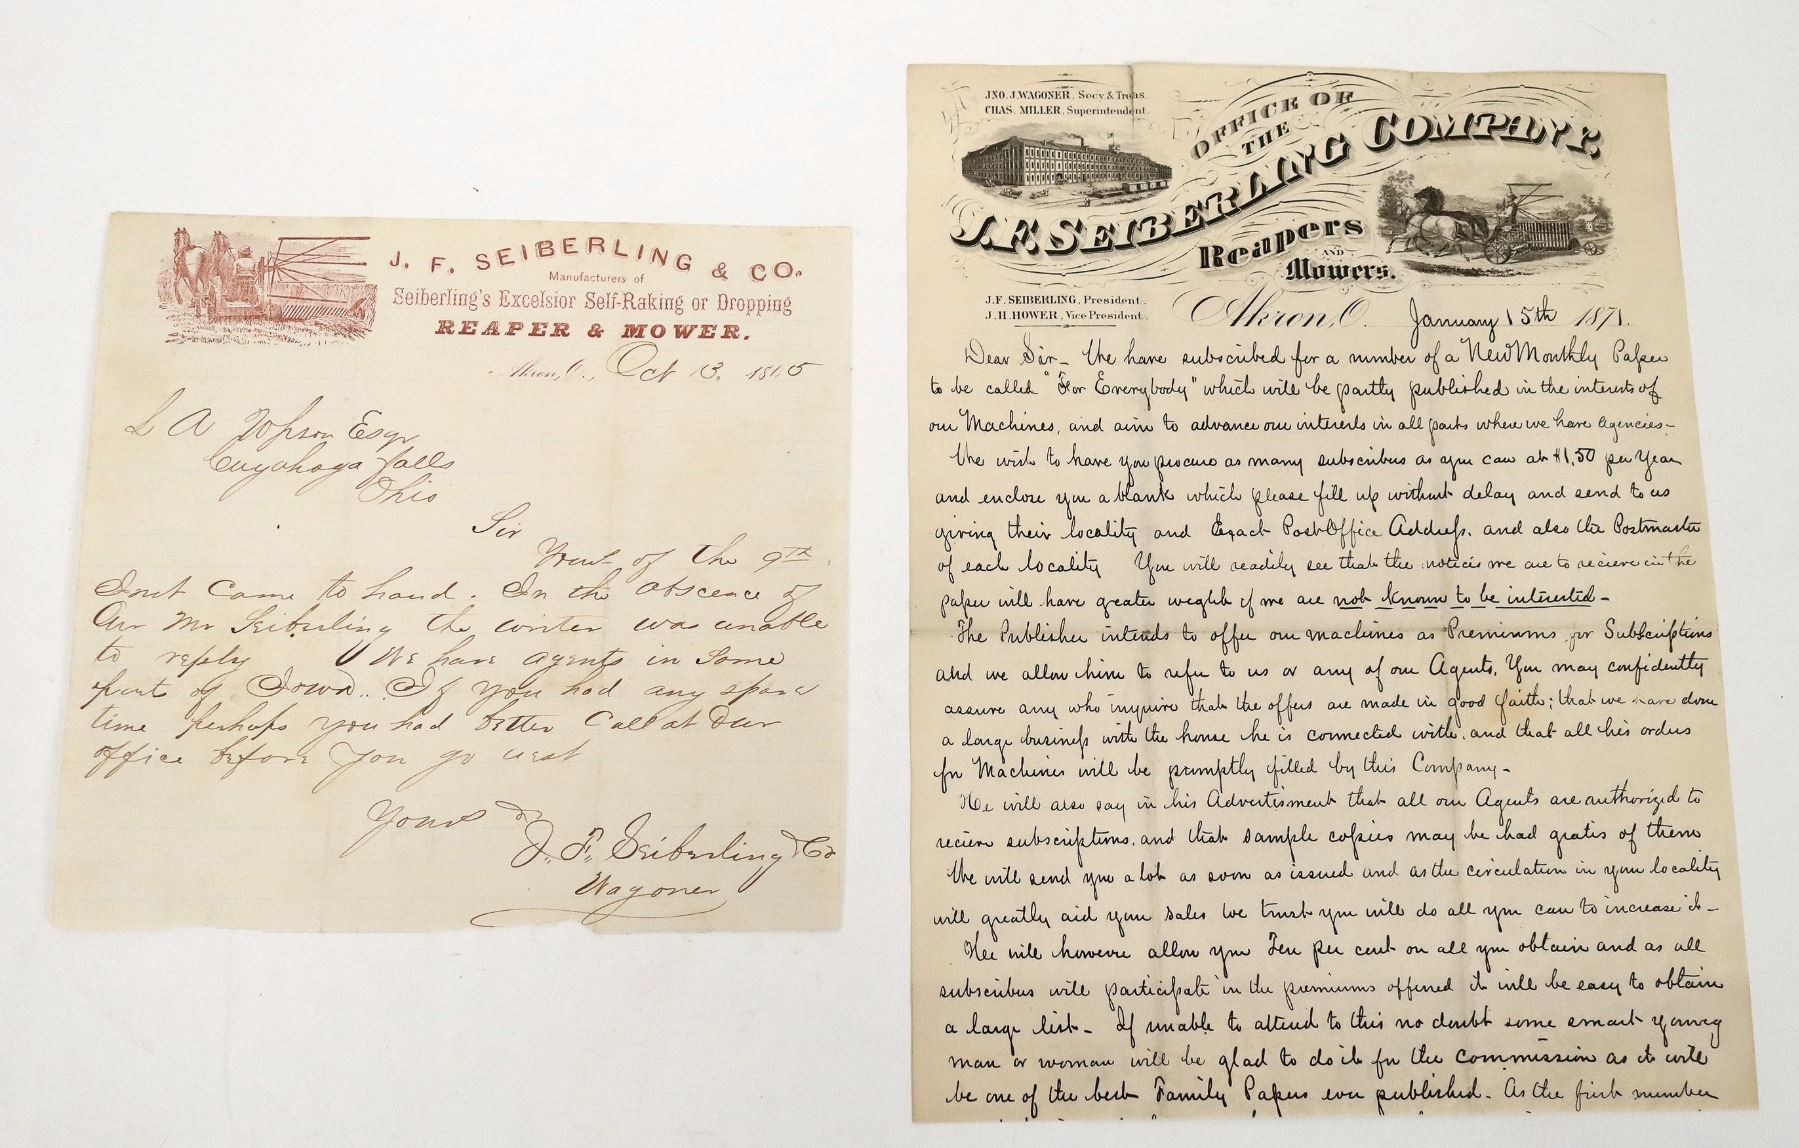 J. F. SEIBERLING & CO.
Manufacturers of
Seiberling's Excelsior Self-Raking or Dropping
REAPER & MOWER.
Akron, O., Oct 13. 1865
L A Upson Esqr
Cuyahoga Falls
Ohio
Sir
Your of the 9th
Inst Came to hand. In the abscence of
Our Mr Seiberling the writer was unable
to reply We have agents in Some
part of Iowa.. If you had any spare
time perhaps you had better Call at Our
office before you go west
Yours &c
J. F. Seiberling & Co
Wagoner
JNO. J. WAGONER, Secy & Treas.
CHAS. MILLER, Superintendent.
OFFICE OF
THE
J. F. SEIBERLING COMPANY.
Reapers
AND
Mowers.
J. F. SEIBERLING, President.
J. H. HOWER, Vice President.
Akron, O. January 15th 1871.
Dear Sir - We have subscribed for a number of a New Monthly Paper
to be called "For Everybody" which will be partly published in the interests of
our Machines, and aim to advance our interests in all parts where we have Agencies-
We wish to have you procure as many subscribers as you can at $1,50 per Year
and enclose you a blank which please fill up without delay and send to us
giving their locality and Exact Post Office Address. and also the Postmaster
of each locality You will readily see that the notices we are to recieve in the
paper will have greater weight if we are not known to be interested -
The Publisher intends to offer our machines as Premiums for Subscriptions
and we allow him to refer to us or any of our Agents. You may confidently
assure any who inquire that the offers are made in good faith; that we have done
a large business with the house he is connected with. and that all his orders
for Machines will be promptly filled by this Company-
He will also say in his Advertisment that all our Agents are authorized to
recieve subscriptions. and that sample copies may be had gratis of them
We will send you a lot as soon as issued and as the circulation in your locality
will greatly aid your sales we trust you will do all you can to increase it-
He will however allow you Ten per cent on all you obtain and as all
subscribers will participate in the premiums offered it will be easy to obtain
a large list - If unable to attend to this no doubt some smart young
man or woman will be glad to do it for the commission as it will
be one of the best Family Papers ever published. As the first number